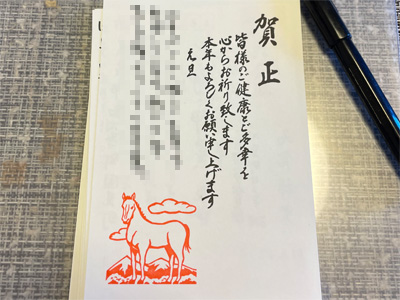 賀正
皆様のご健康とご多幸を
心からお祈り致します
本年もよろしくお願い申し上げます
元旦